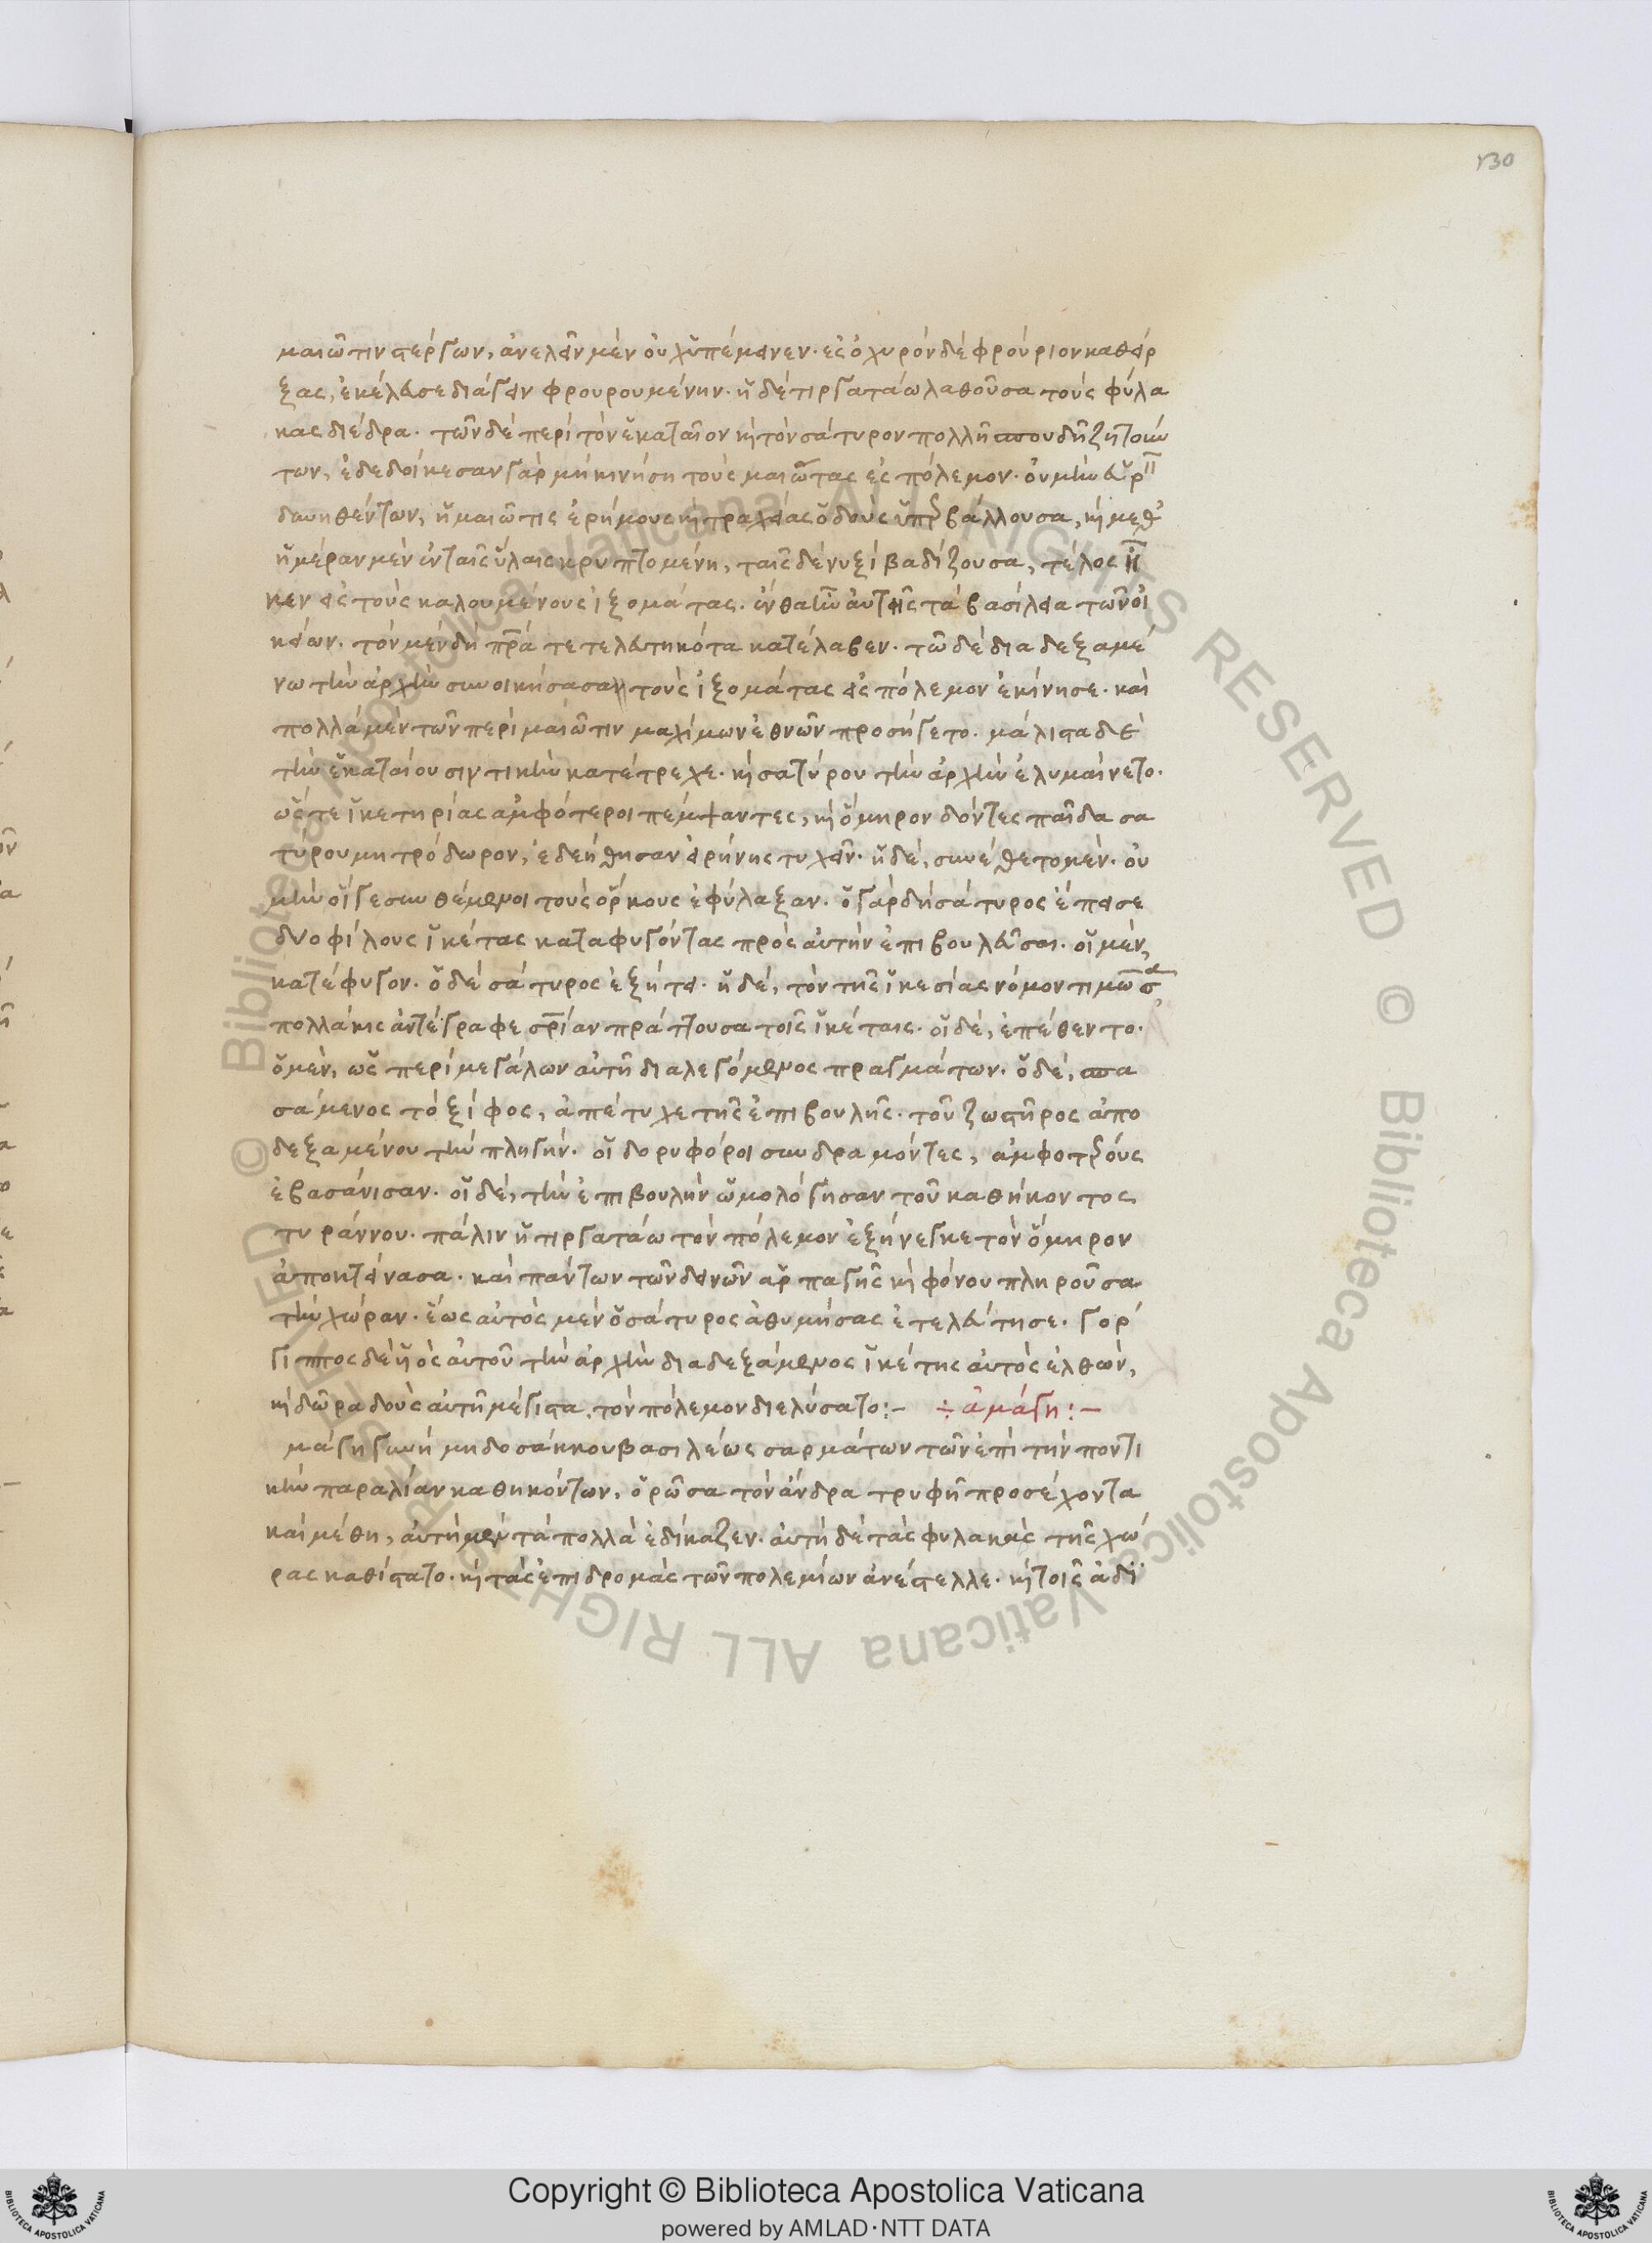 130
μαιῶτιν στέργων, ἀνελεῖν μὲν οὐχ ὑπέμεινεν· ἐς ὀχυρὸν δὲ φρούριον καθείρ
ξας, ἐκέλευσε διάγειν φρουρουμένην· ἡ δὲ τιργαταὼ λαθοῦσα τοὺς φύλα
κας διέδρα· τῶν δὲ περὶ τὸν ἑκαταῖον καὶ τὸν σάτυρον πολλῇ σπουδῇ ζητούν
των, ἐδεδοίκεσαν γὰρ μὴ κινήσῃ τοὺς μαιώτας ἐς πόλεμον· οὐ μὴν εὑρεῖν
δυνηθέντων, ἡ μαιῶτις ἐρήμους καὶ τραχείας ὁδοὺς ὑπερβάλλουσα, καὶ μεθ'
ἡμέραν μὲν ἐν ταῖς ὕλαις κρυπτομένη, ταῖς δὲ νυξὶ βαδίζουσα, τέλος ἧ
κεν εἰς τοὺς καλουμένους ἰξομάτας· ἔνθα ἦν αὐτῆς τὰ βασίλεια τῶν οἰ
κείων· τὸν μὲν δὴ πατέρα τετελευτηκότα κατέλαβεν· τῶ δὲ διαδεξαμέ
νω τὴν ἀρχὴν συνοικήσασα τοὺς ἰξομάτας εἰς πόλεμον ἐκίνησε· καὶ
πολλὰ μὲν τῶν περὶ μαιῶτιν μαχίμων ἐθνῶν προσήγετο· μάλιστα δὲ
τὴν ἑκαταίου σιντικὴν κατέτρεχε· καὶ σατύρου τὴν ἀρχὴν ἐλυμαίνετο·
ὥστε ἱκετηρίας ἀμφότεροι πέμψαντες, καὶ ὅμηρον δόντες παῖδα σα
τύρου μητρόδωρον, ἐδεήθησαν εἰρήνης τυχεῖν· ἡ δὲ, συνέθετο μὲν· οὐ
μὴν οἵ γε συνθέμενοι τοὺς ὅρκους ἐφύλαξαν· ὁ γὰρ δὴ σάτυρος ἔπεισε
δυο φίλους ἱκέτας καταφυγόντας πρὸς αὐτὴν ἐπιβουλεῦσαι· οἱ μὲν,
κατέφυγον· ὁ δὲ σάτυρος ἐξήτει· ἡ δὲ, τὸν τῆς ἱκεσίας νόμον τιμῶσα
πολλάκις ἀντέγραφε σωτηρίαν πράττουσα τοῖς ἱκέταις· οἱ δὲ, ἐπέθεντο·
ὁ μὲν, ὡς περὶ μεγάλων αὐτῇ διαλεγόμενος πραγμάτων· ὁ δὲ, σπα
σάμενος τὸ ξίφος, ἀπέτυχε τῆς ἐπιβουλῆς· τοῦ ζωστῆρος ἀπο
δεξαμένου τὴν πληγήν· οἱ δορυφόροι συνδραμόντες, ἀμφοτέρους
ἐβασάνισαν· οἱ δὲ, τὴν ἐπιβουλὴν ὡμολόγησαν τοῦ καθήκοντος
τυράννου· πάλιν ἡ τιργαταὼ τὸν πόλεμον ἐξήνεγκε τὸν ὅμηρον
ἀποκτείνασα· καὶ πάντων τῶν δεινῶν ἁρπαγῆς καὶ φόνου πληροῦσα
τὴν χώραν· ἕως αὐτὸς μὲν ὁ σάτυρος ἀθυμήσας ἐτελεύτησε· γόρ
γιππος δὲ ὑὸς αὐτοῦ τὴν ἀρχὴν διαδεξάμενος ἱκέτης αὐτὸς ἐλθὼν,
καὶ δῶρα δοὺς αὐτῇ μέγιστα, τὸν πόλεμον διελύσατο:– ÷ ἀμάγη:–
μάγη γυνὴ μηδοσάκκου βασιλέως σαρμάτων τῶν ἐπὶ τὴν ποντι
κὴν παραλίαν καθηκόντων, ὁρῶσα τὸν ἄνδρα τρυφῇ προσέχοντα
καὶ μέθη, αὐτὴ μὲν τὰ πολλὰ ἐδίκαζεν· αὐτὴ δὲ τὰς φυλακὰς τῆς χώ
ρας καθίστατο· καὶ τὰς ἐπιδρομὰς τῶν πολεμίων ἀνέστελλε· καὶ τοῖς ἀδι
Copyright © Biblioteca Apostolica Vaticana
powered by AMLAD·NTT DATA